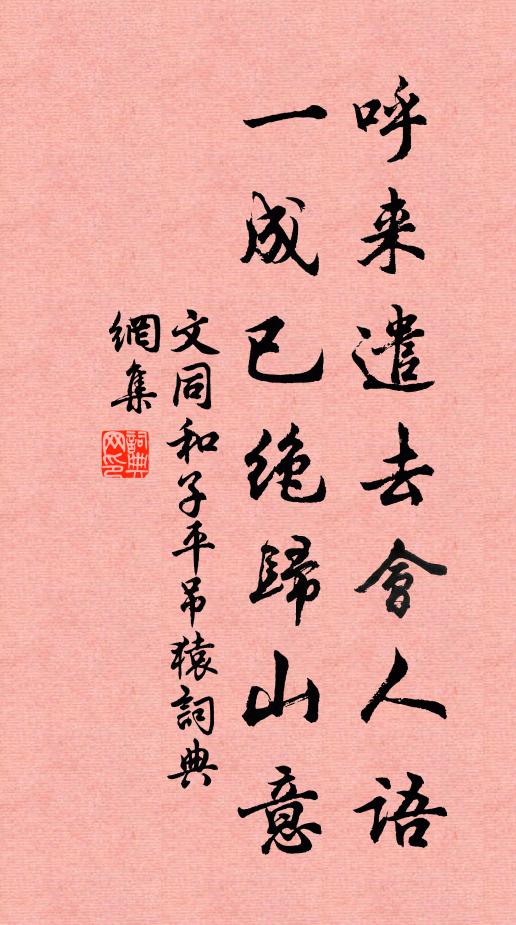 呼来遣去會人語
一成已绝歸山意
文同和子平吊猿詞典
網集
詞典网印